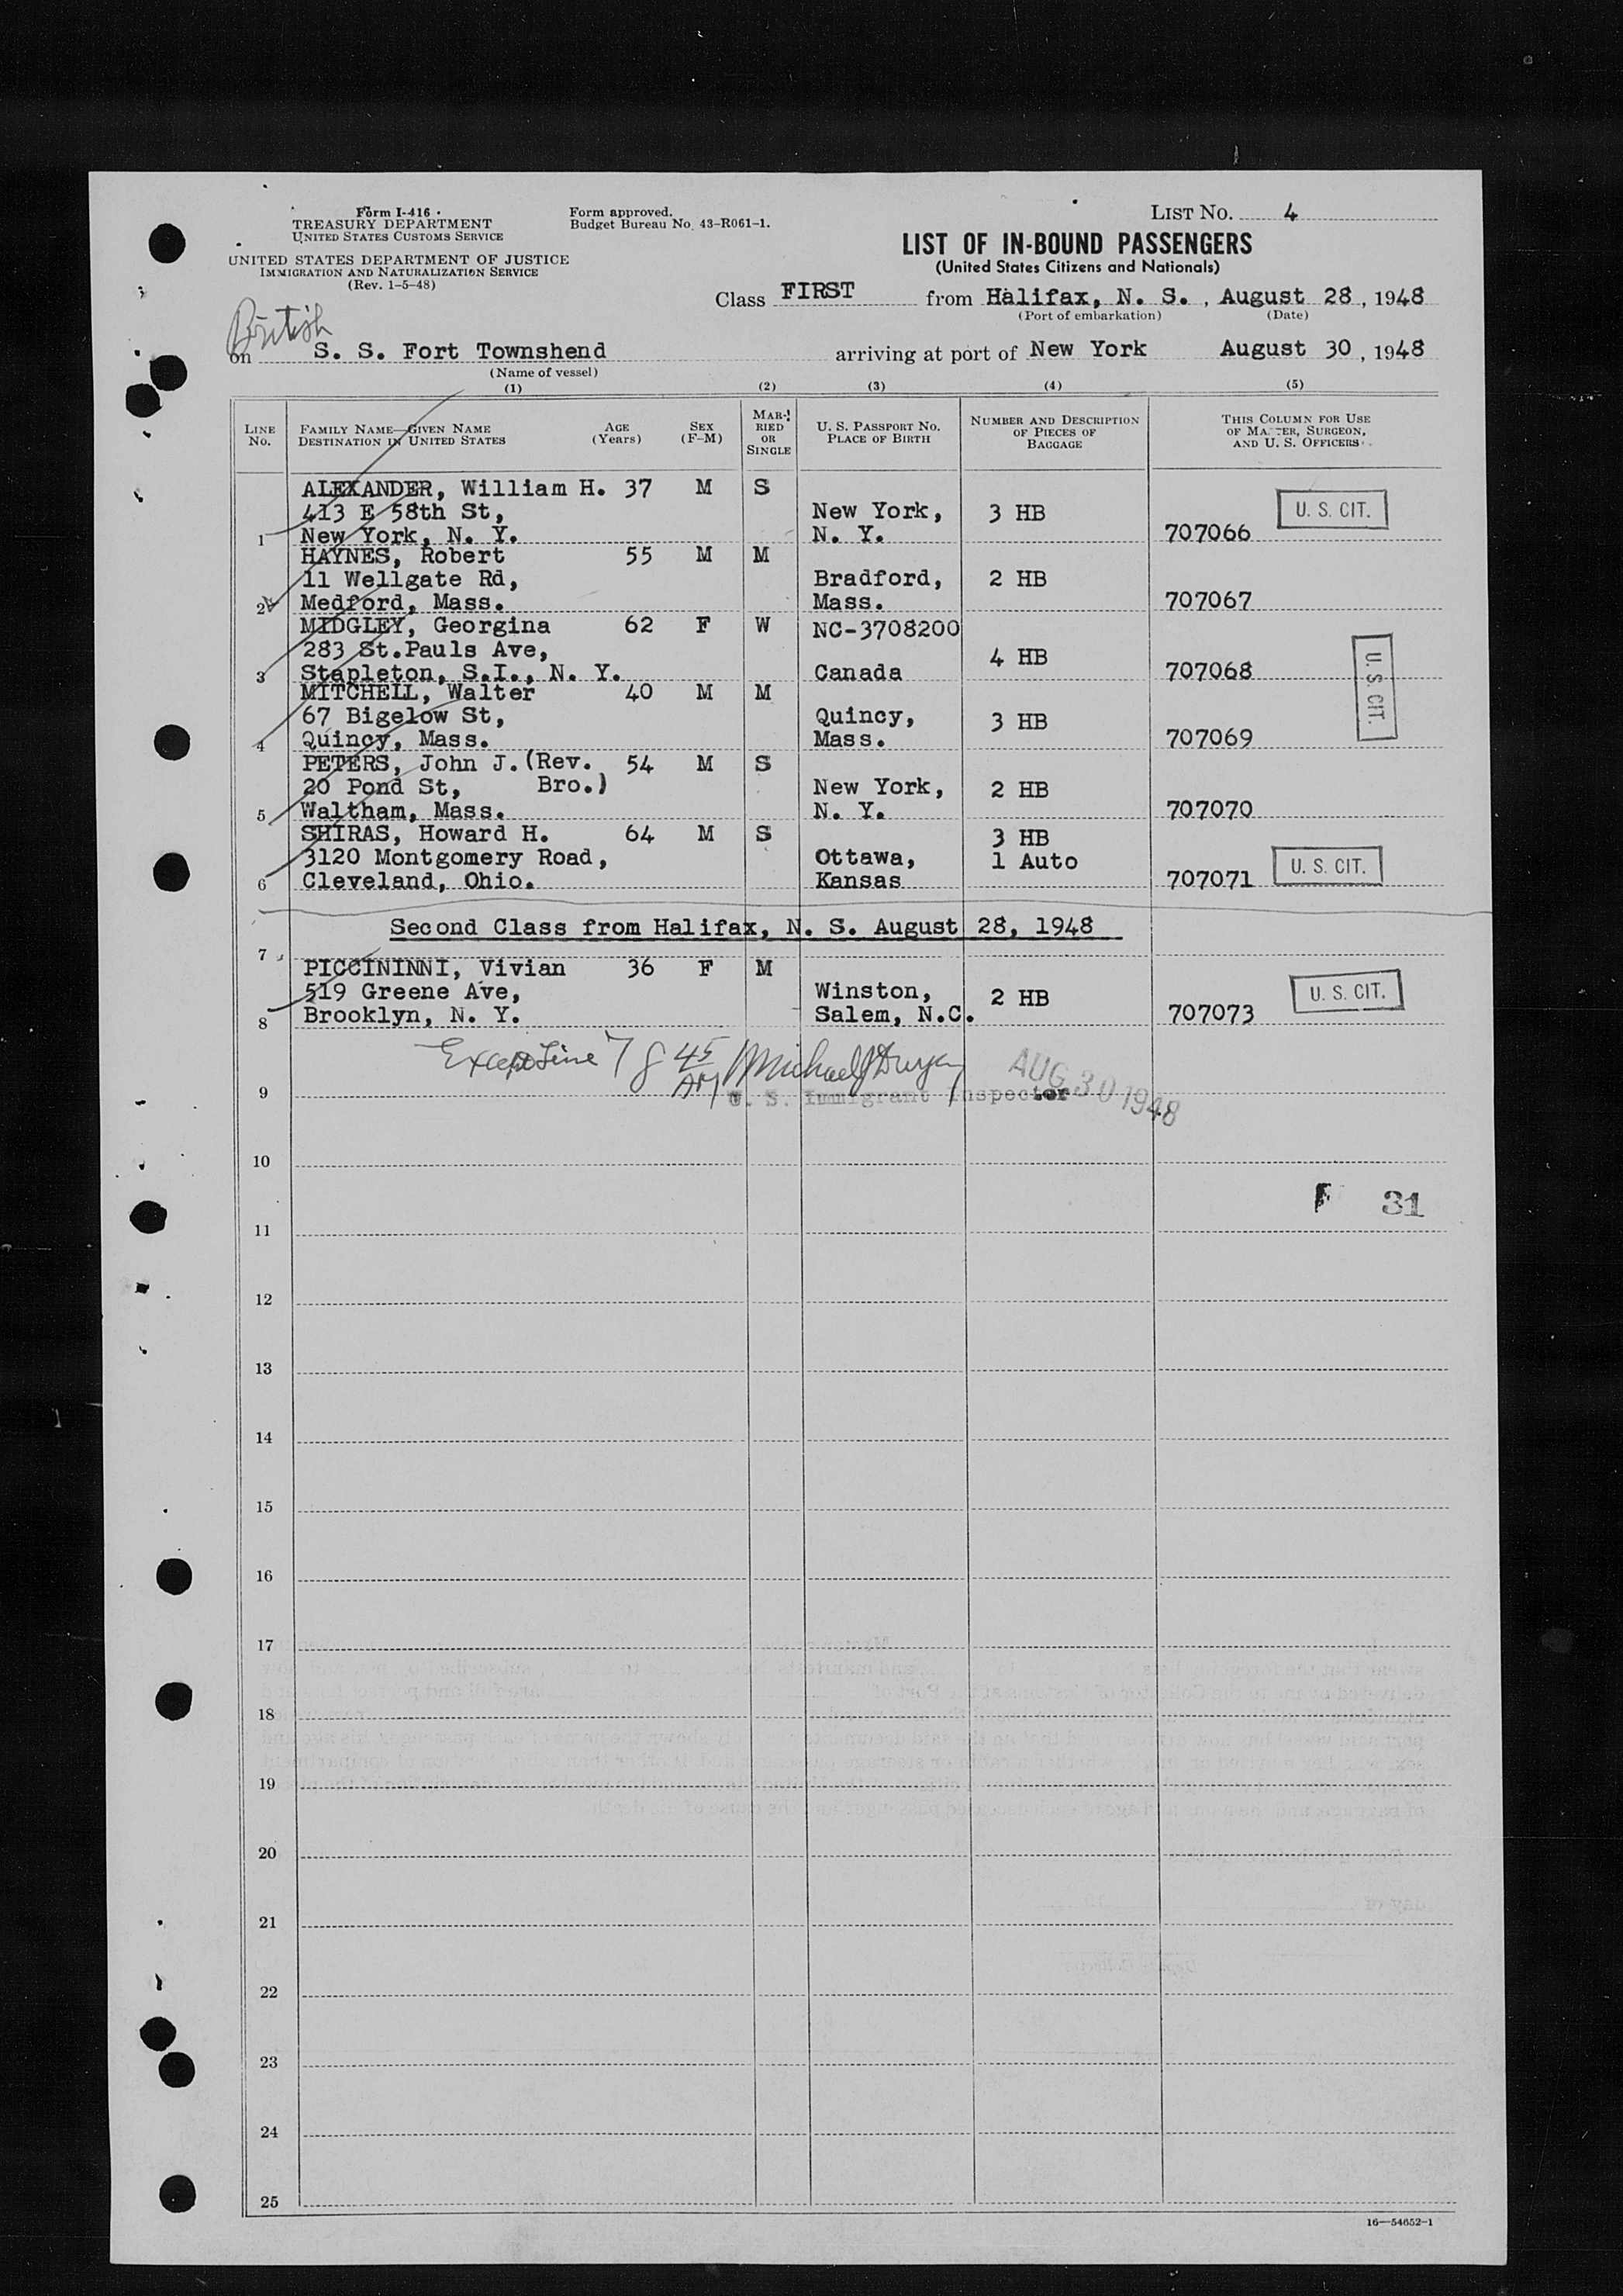 Form I-416
TREASURY DEPARTMENT
UNITED STATES CUSTOMS SERVICE
UNITED STATES DEPARTMENT OF JUSTICE
IMMIGRATION AND NATURALIZATION SERVICE
(Rev. 1-5-48)
Form approved.
Budget Bureau No. 43-R061-1.
LIST No. 4
LIST OF IN-BOUND PASSENGERS
(United States Citizens and Nationals)
Class FIRST from Halifax, N. S. , August 28 , 1948
(Port of embarkation) (Date)
British
on S. S. Fort Townshend arriving at port of New York August 30 , 1948
(Name of vessel)
(1) (2) (3) (4) (5)
LINE No. FAMILY NAME—GIVEN NAME DESTINATION IN UNITED STATES AGE (Years) SEX (F-M) MARRIED OR SINGLE U. S. PASSPORT NO. PLACE OF BIRTH NUMBER AND DESCRIPTION OF PIECES OF BAGGAGE THIS COLUMN FOR USE OF MASTER, SURGEON, AND U. S. OFFICERS
ALEXANDER, William H. 37 M S
413 E 58th St, New York, 3 HB U. S. CIT.
1 New York, N. Y. N. Y. 707066
HAYNES, Robert 55 M M
11 Wellgate Rd, Bradford, 2 HB
2 Medford, Mass. Mass. 707067
MIDGLEY, Georgina 62 F W NC-3708200
283 St.Pauls Ave, 4 HB U. S. CIT.
3 Stapleton, S.I., N. Y. Canada 707068
MITCHELL, Walter 40 M M
67 Bigelow St, Quincy, 3 HB
4 Quincy, Mass. Mass. 707069
PETERS, John J. (Rev. 54 M S
20 Pond St, Bro.) New York, 2 HB
5 Waltham, Mass. N. Y. 707070
SHIRAS, Howard H. 64 M S 3 HB
3120 Montgomery Road, Ottawa, 1 Auto U. S. CIT.
6 Cleveland, Ohio. Kansas 707071
Second Class from Halifax, N. S. August 28, 1948
7
PICCININNI, Vivian 36 F M
519 Greene Ave, Winston, 2 HB U. S. CIT.
8 Brooklyn, N. Y. Salem, N.C. 707073
Except Line 7 8 45 AM Michael J Dwyer AUG 30 1948
9 U. S. Immigrant Inspector
10
31
11
12
13
14
15
16
17
18
19
20
21
22
23
24
25
16—54652-1